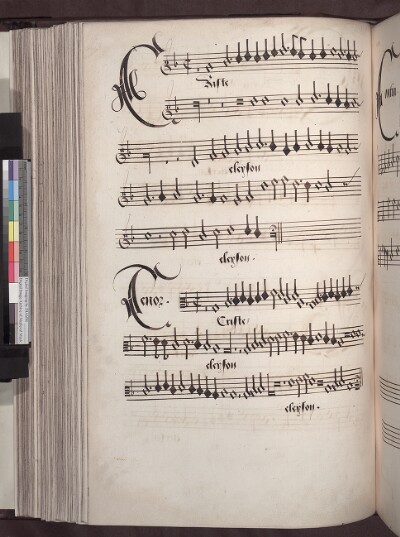 Criste
eleyson
eleyson.
Tenor.
Criste
eleyson
eleyson.